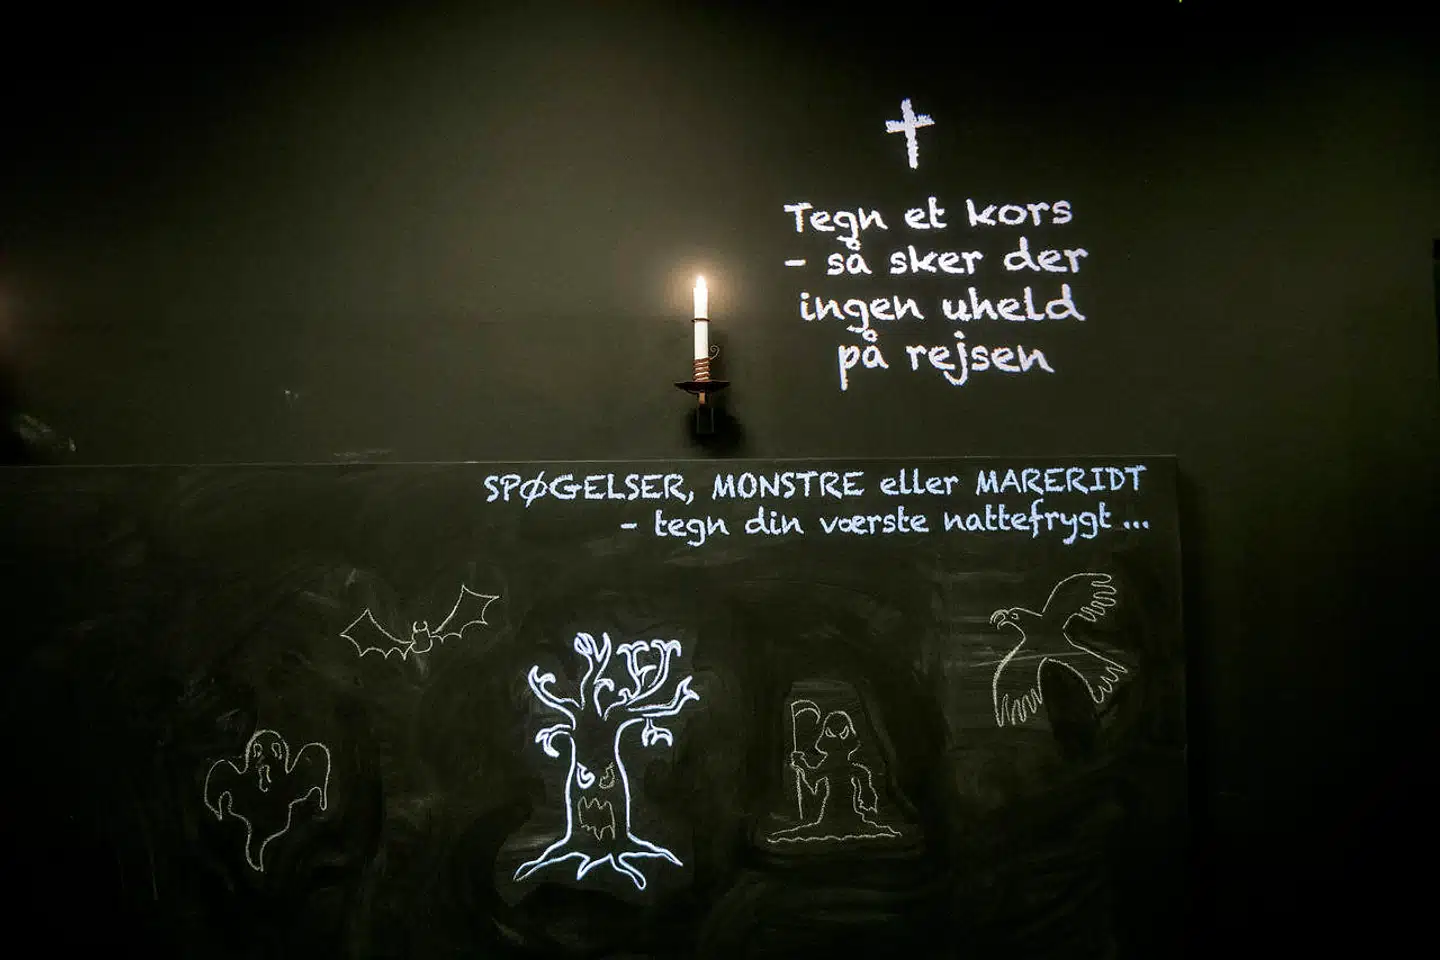 Tegn et kors
- så sker der
ingen uheld
på rejsen
SPØGELSER, MONSTRE eller MARERIDT
- tegn din værste nattefrygt...